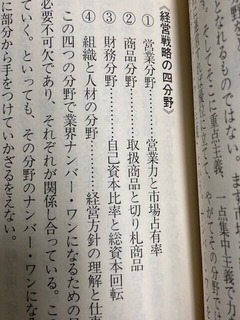 まとれるものではない。ま
に、そこに重点主義、一点集中
と、やが
、その分野で
《経営戦略の四分野》
① 営業分野………営業力と市場占有率
② 商品分野………取扱商品と切り札商品
③ 財務分野………自己資本比率と総資本回転
④ 組織と人材の分野………経営方針の理解と仕事
この四つの分野で業界ナンバー・ワンになるための
必要不可欠であり、それぞれが関係し合っている。こ
ていく。といっても、その分野のナンバー・ワンにな
に部分から手をつけていかざるをえない。